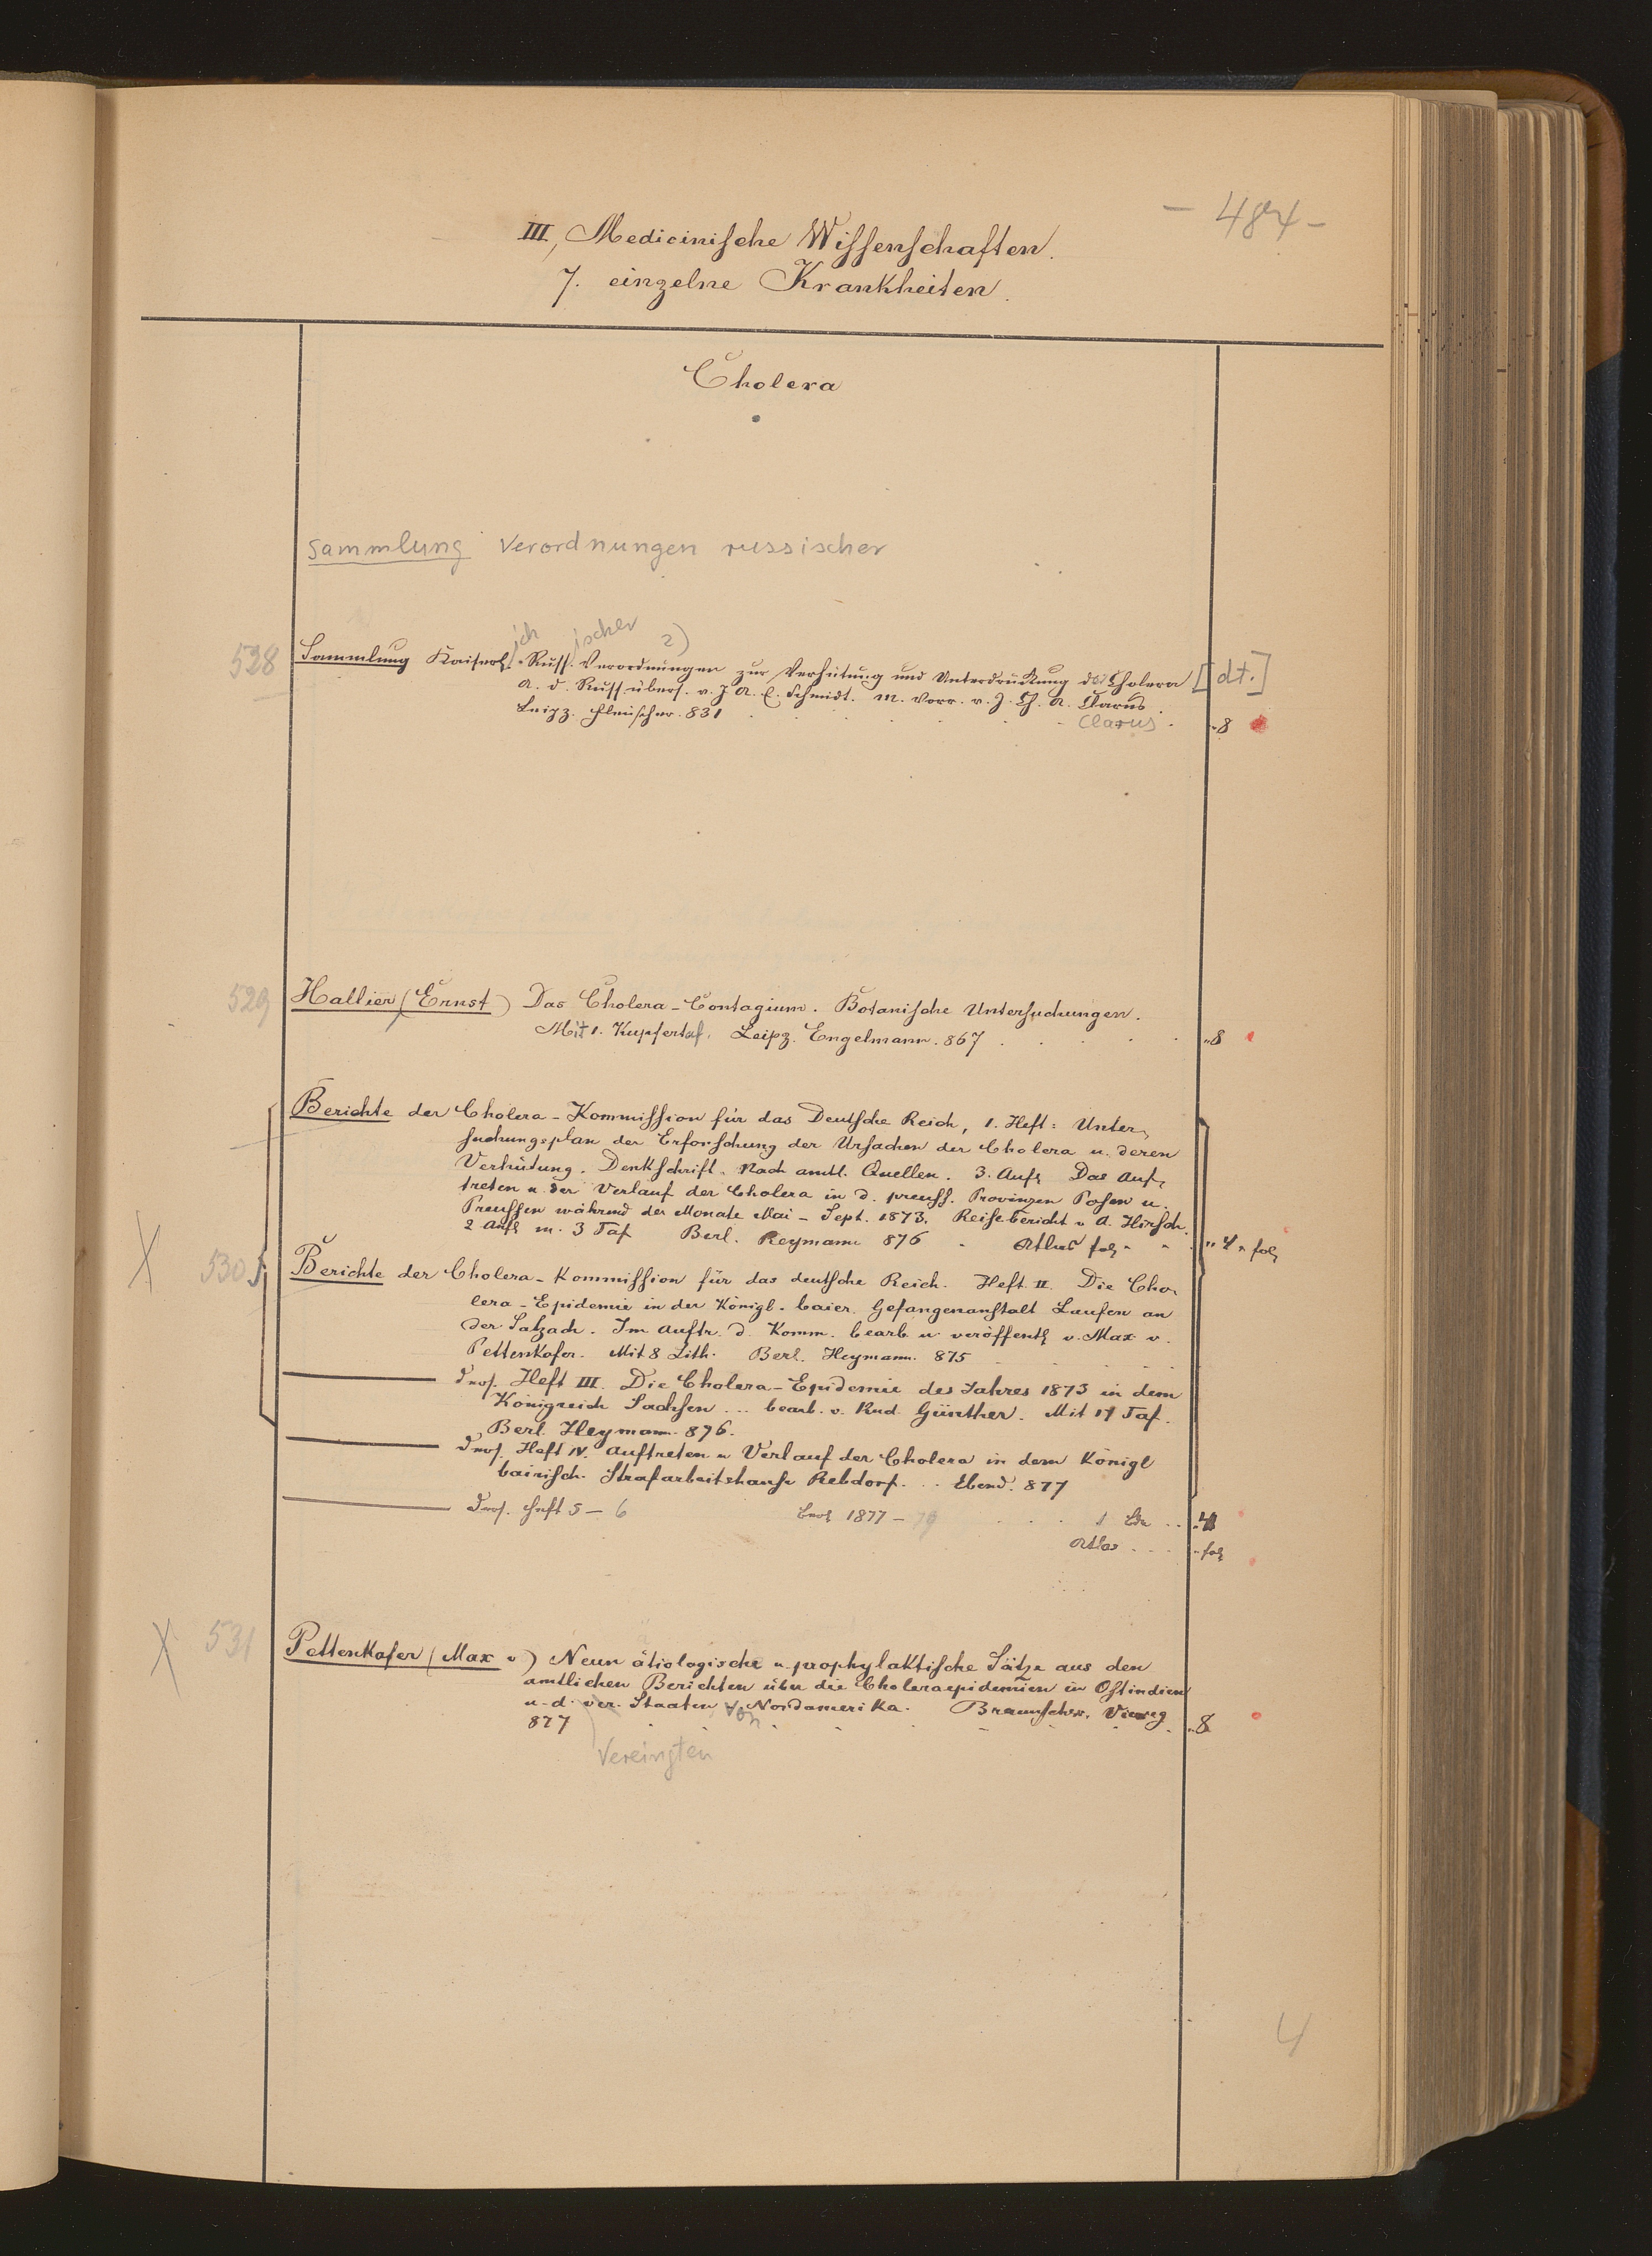 - 484 -
III, Medicinische Wissenschaften.
7. einzelne Krankheiten.
Cholera
Sammlung Verordnungen russischer
ich ischer 2)
528 Sammlung Kaiserl. Russ. Verordnungen zur Verhütung und Unterdrückung der Cholera [dt.]
A. d. Russ. übers. v. J. A. E. Schmidt. M. Vorr. v. J. Ch. A. Clarus.
Leipz. Fleischer. 831 Clarus. 8
529 Hallier (Ernst) Das Cholera-Contagium. Botanische Untersuchungen.
Mit 1. Kupfertaf. Leipz. Engelmann. 867 8
Berichte der Cholera-Kommission für das Deutsche Reich, 1. Heft: Unter-
suchungsplan der Erforschung der Ursachen der Cholera u. deren
Verhütung. Denkschrift. Nach amtl. Quellen. 3. Aufl. Das Auf-
treten u. der Verlauf der Cholera in d. preuss. Provinzen Posen u.
Preussen während der Monate Mai - Sept. 1873. Reisebericht v. A. Hirsch.
2 Aufl. m. 3 Taf. Berl. Heymann 876 Atlas fol. 4 fol.
X 530 Berichte der Cholera-Kommission für das deutsche Reich. Heft II. Die Cho-
lera-Epidemie in der Königl. baier. Gefangenanstalt Laufen an
der Salzach. Im Auftr. d. Komm. bearb. u. veröffentl. v. Max v.
Pettenkofer. Mit 8 Lith. Berl. Heymann. 875
Heft III. Die Cholera-Epidemie des Jahres 1873 in dem
Königreich Sachsen ... bearb. v. Rud. Günther. Mit 17 Taf.
Berl. Heymann. 876.
Heft IV. Auftreten u. Verlauf der Cholera in dem Königl.
bairisch. Strafarbeitshause Rebdorf. .. Ebend. 877
Heft 5 - 6 1877 - 79 1 4
Atlas fol.
X 531 Pettenkofer (Max v.) Neun ätiologische u. prophylaktische Sätze aus den
amtlichen Berichten über die Choleraepidemien in Ostindien
u. d. ver. Staaten von Nordamerika. Braunschw. Vieweg
877 8
Vereingten
4